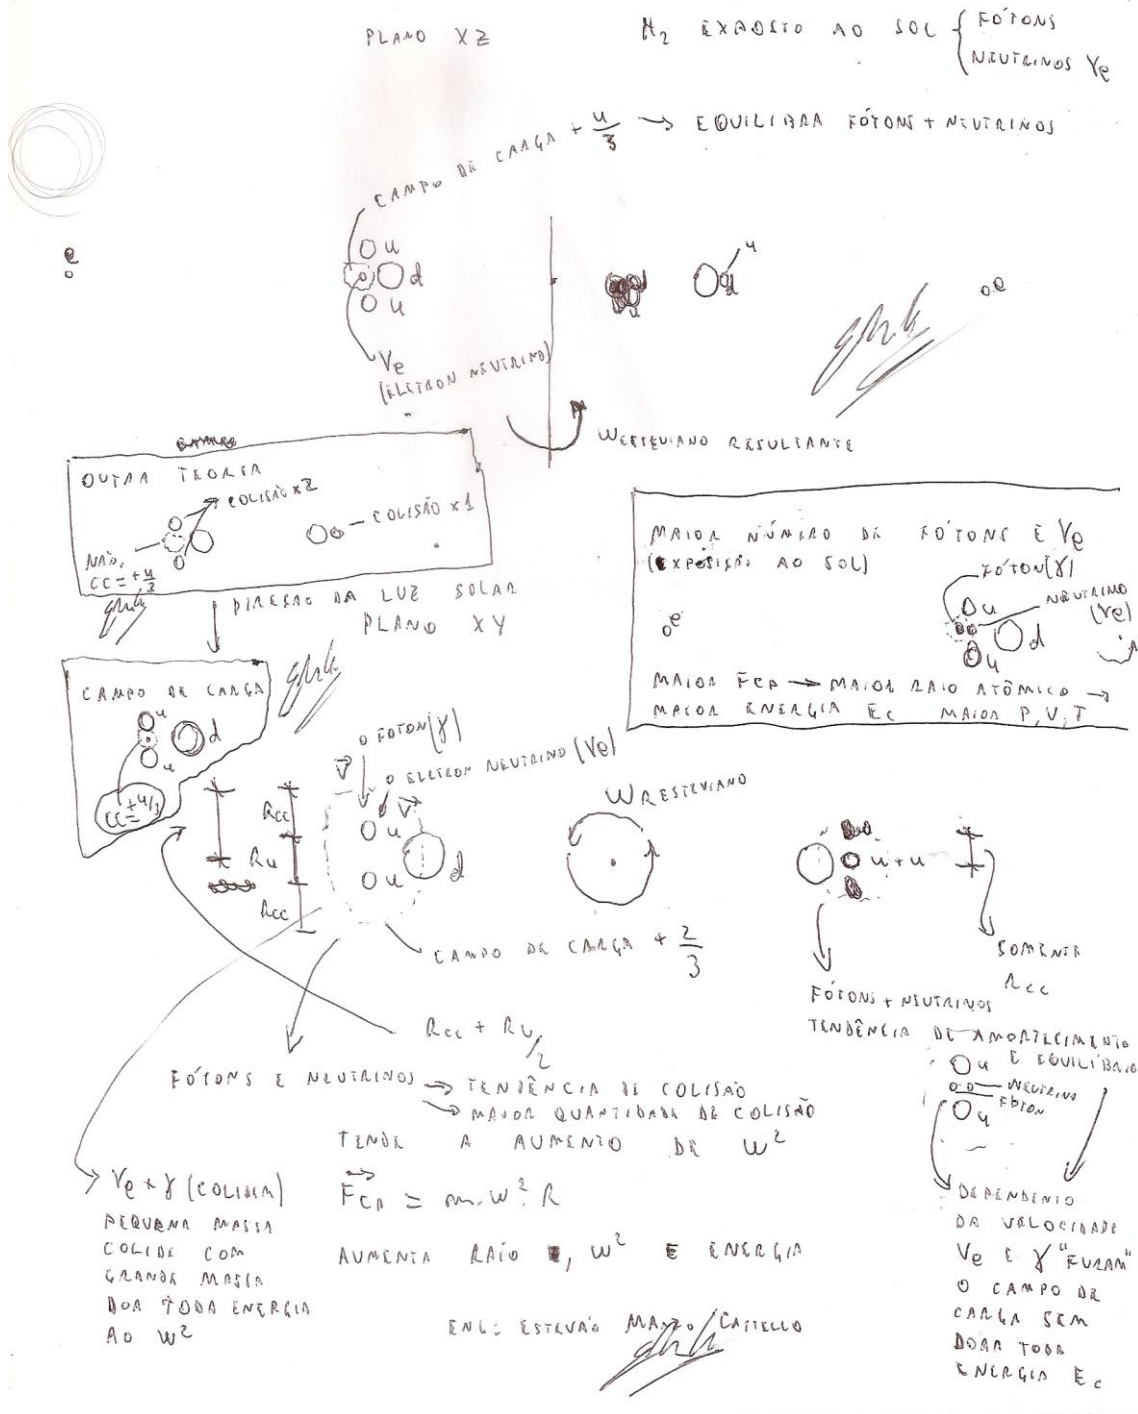 PLANO XZ
H2 EXPOSTO AO SOL { FÓTONS
NEUTRINOS Ve
CAMPO DE CARGA + 4/3 → EQUILIBRA FÓTONS + NEUTRINOS
e
u
d
u
u
u
e
Ve
(ELETRON NEUTRINO)
WRESTEVIANO RESULTANTE
OUTRA TEORIA
COLISÃO x2
COLISÃO x1
NÃO,
CC = +4/3
DIREÇÃO DA LUZ SOLAR
PLANO XY
MAIOR NÚMERO DE FÓTONS E Ve
(EXPOSIÇÃO AO SOL)
FÓTON(γ)
NEUTRINO
(Ve)
e
u
d
u
MAIOR FCP → MAIOR RAIO ATÔMICO →
MAIOR ENERGIA Ec MAIOR P, V, T
CAMPO DE CARGA
u
d
u
CC = +4/3
V FOTON(γ)
ELETRON NEUTRINO (Ve)
V
Rcc
u
Ru
u
d
Rcc
WRESTEVIANO
u + u
CAMPO DE CARGA + 2/3
SOMENTE
Rcc
Rcc + Ru/2
FÓTONS + NEUTRINOS
TENDÊNCIA DE AMORTECIMENTO
E EQUILÍBRIO
u
NEUTRINO
FÓTON
u
FÓTONS E NEUTRINOS → TENDÊNCIA DE COLISÃO
→ MAIOR QUANTIDADE DE COLISÃO
TENDE A AUMENTO DE W²
Ve + γ (COLIDEM)
PEQUENA MASSA
COLIDE COM
GRANDE MASSA
DOA TODA ENERGIA
AO W²
FCP = m.W².R
AUMENTA RAIO, W² E ENERGIA
DEPENDENTO
DA VELOCIDADE
Ve E γ "FURAM"
O CAMPO DE
CARGA SEM
DOAR TODA
ENERGIA Ec
ENG: ESTEVÃO MANZO CASTELLO